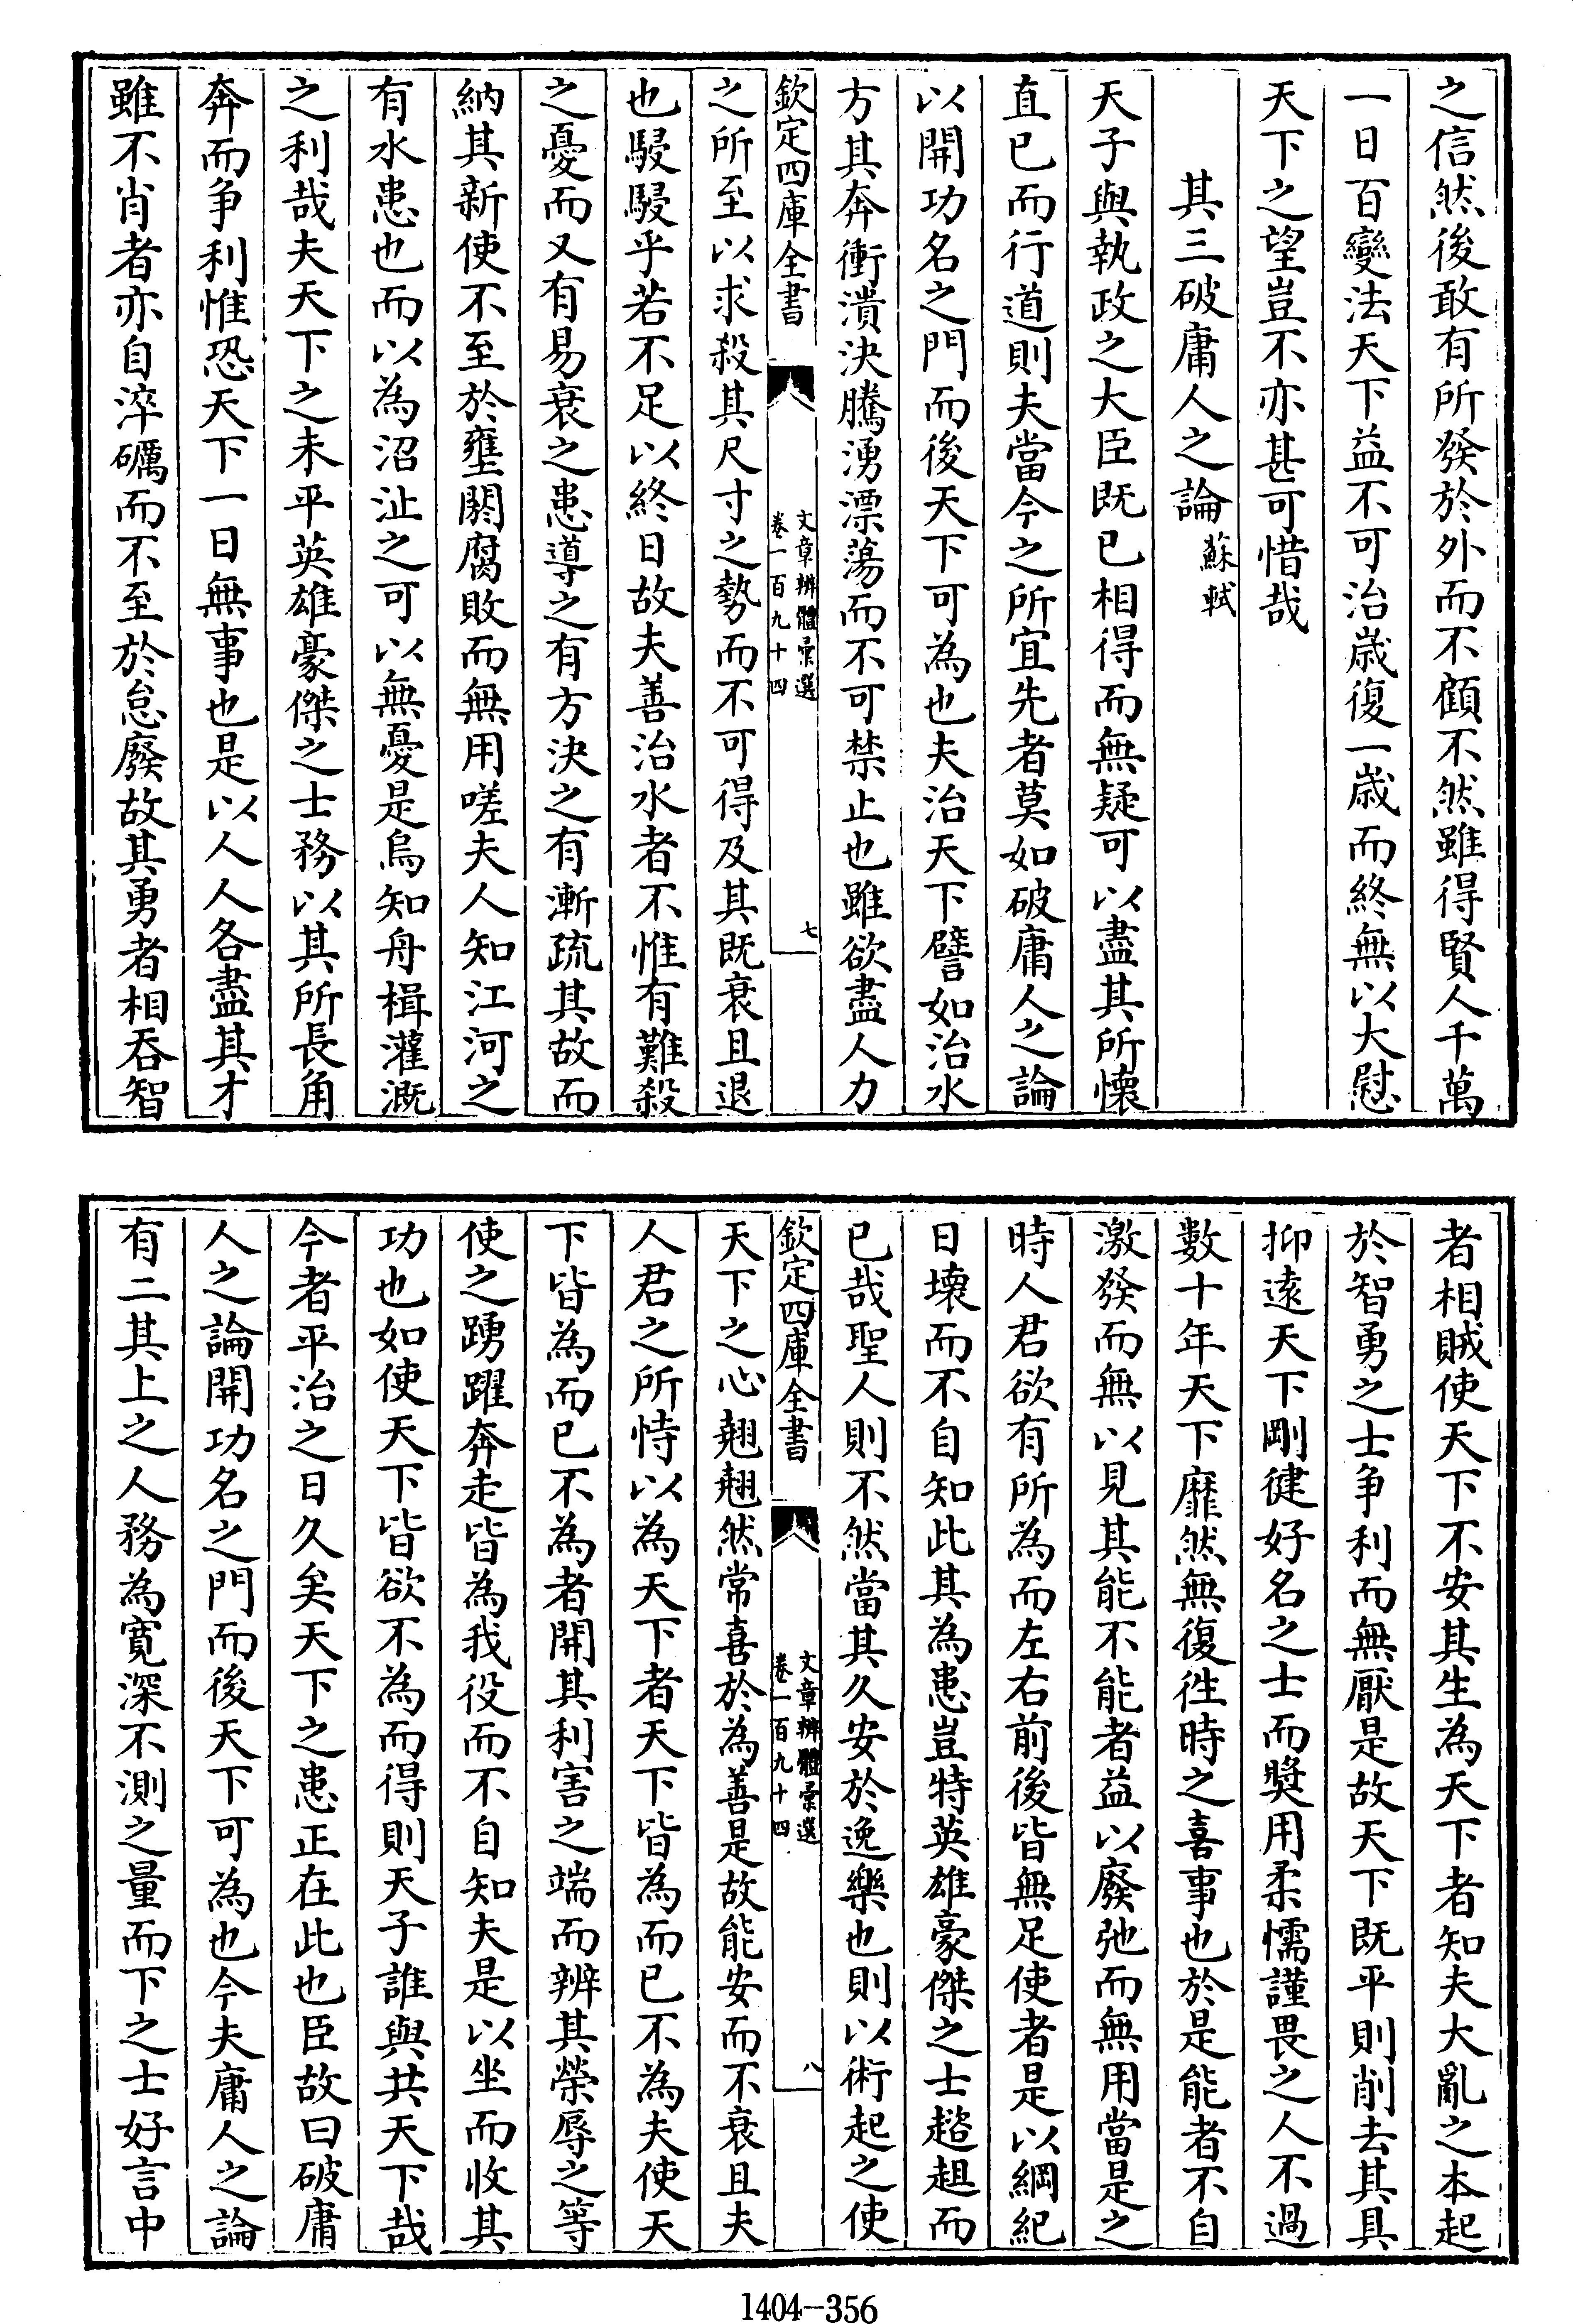 之信然後敢有所發於外而不顧不然雖得賢人千萬
一日百變法天下益不可治歳復一歳而終無以大慰
天下之望豈不亦甚可惜哉
其三破庸人之論 蘇軾
天子與執政之大臣既已相得而無疑可以盡其所懐
直已而行道則夫當今之所宜先者莫如破庸人之論
以開功名之門而後天下可為也夫治天下譬如治水
方其奔衝潰決騰湧漂蕩而不可禁止也雖欲盡人力
欽定四庫全書
文章辨體彙選
卷一百九十四
七
之所至以求殺其尺寸之勢而不可得及其既衰且退
也駸駸乎若不足以終日故夫善治水者不惟有難殺
之憂而又有易衰之患導之有方決之有漸疏其故而
納其新使不至於壅閼腐敗而無用嗟夫人知江河之
有水患也而以為沼沚之可以無憂是烏知舟楫灌溉
之利哉夫天下之未平英雄豪傑之士務以其所長角
奔而争利惟恐天下一日無事也是以人人各盡其才
雖不肖者亦自淬礪而不至於怠廢故其勇者相吞智
者相賊使天下不安其生為天下者知夫大亂之本起
於智勇之士争利而無厭是故天下既平則削去其具
抑遠天下剛徤好名之士而奬用柔懦謹畏之人不過
數十年天下靡然無復徃時之喜事也於是能者不自
激發而無以見其能不能者益以廢弛而無用當是之
時人君欲有所為而左右前後皆無足使者是以綱紀
日壊而不自知此其為患豈特英雄豪傑之士趦趄而
已哉聖人則不然當其久安於逸樂也則以術起之使
欽定四庫全書
文章辨體彙選
卷一百九十四
八
天下之心翹翹然常喜於為善是故能安而不衰且夫
人君之所恃以為天下者天下皆為而已不為夫使天
下皆為而已不為者開其利害之端而辨其榮辱之等
使之踴躍奔走皆為我役而不自知夫是以坐而收其
功也如使天下皆欲不為而得則天子誰與共天下哉
今者平治之日久矣天下之患正在此也臣故曰破庸
人之論開功名之門而後天下可為也今夫庸人之論
有二其上之人務為寛深不測之量而下之士好言中
1404-356